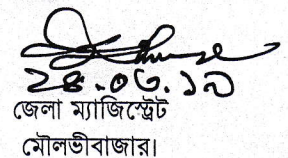 ২৪.০৩.১৯
জেলা ম্যাজিস্ট্রেট
মৌলভীবাজার।